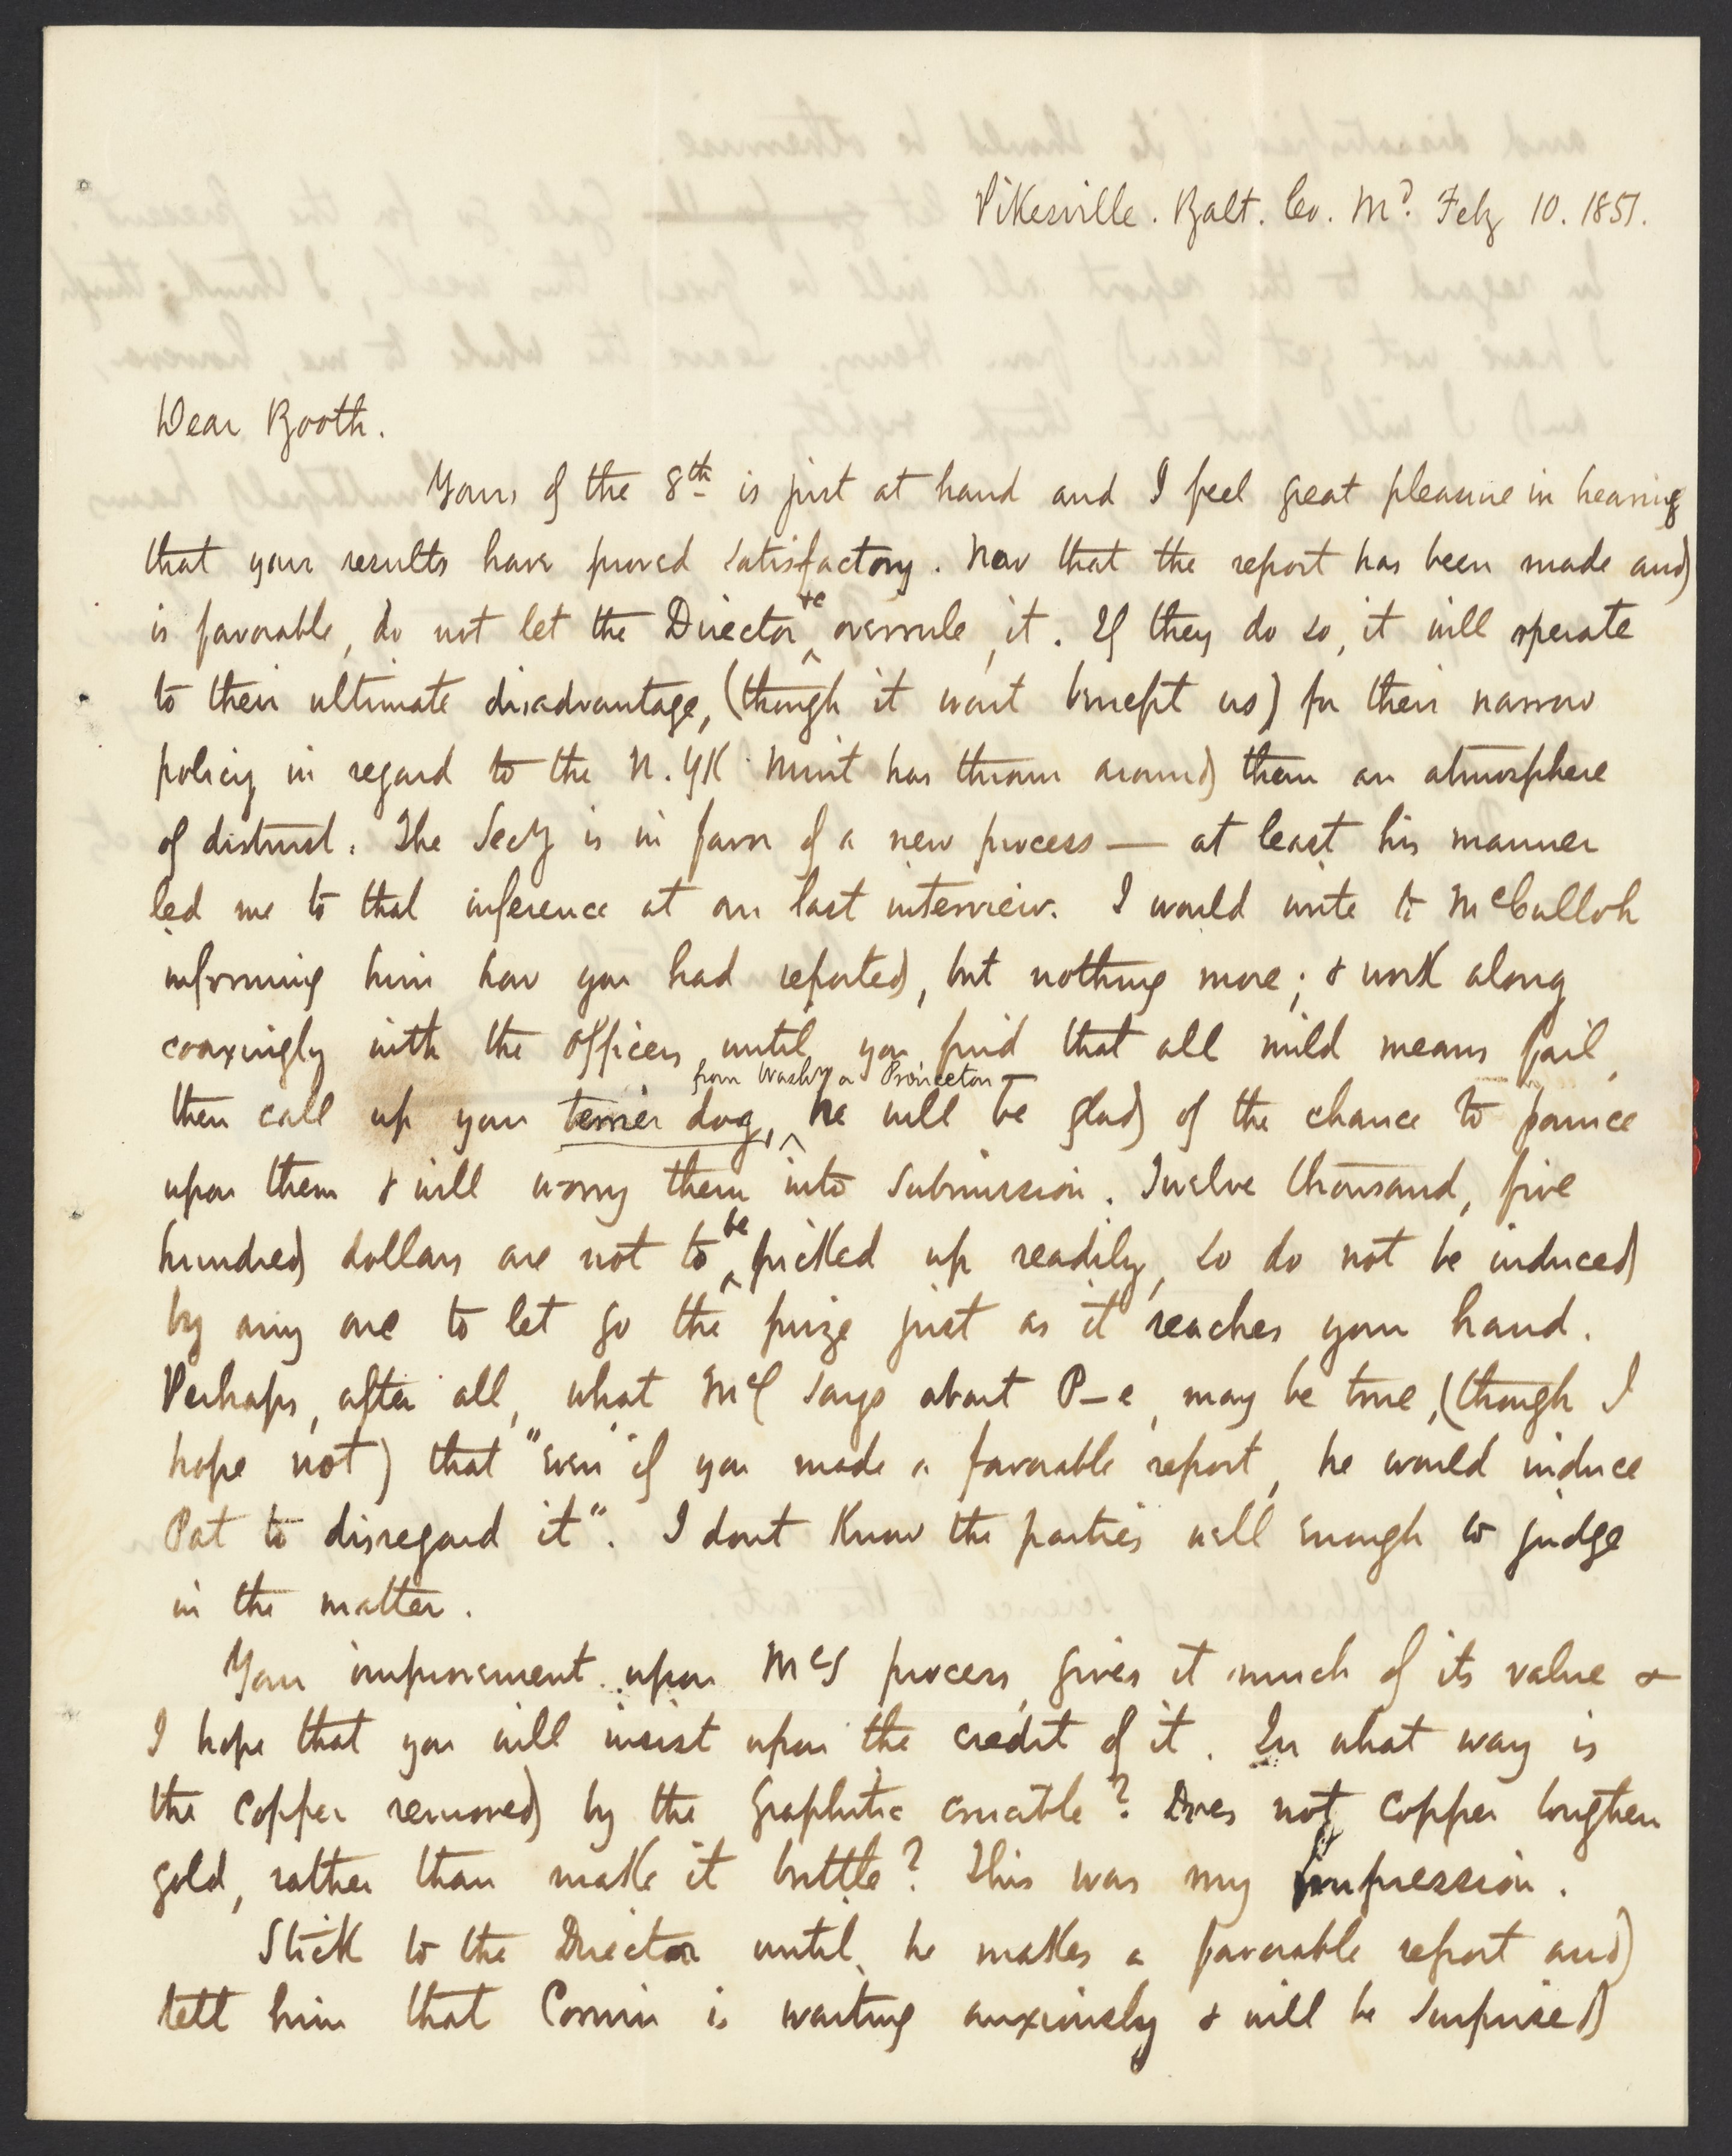 Pikesville. Balt. Co. Md. Feby 10. 1851.
Dear Booth.
Yours of the 8th is just at hand and I feel great pleasure in hearing
that your results have proved satisfactory. Now that the report has been made and
is favorable, do not let the Director &c overrule it. If they do so, it will operate
to their ultimate disadvantage, (though it wont benefit us) for their narrow
policy in regard to the N. YK Mint has thrown around them an atmosphere
of distrust. The Secy is in favor of a new process — at least his manner
led me to that inference at our last interview. I would write to McCulloh
informing him how you had reported, but nothing more; & work along
coaxingly with the officers until you find that all mild means fail,
then call up your terrier dog, from Washn or Princeton — he will be glad of the chance to pounce
upon them & will worry them into submission. Twelve thousand, five
hundred dollars are not to be picked up readily, so do not be induced
by any one to let go the prize just as it reaches your hand.
Perhaps, after all, what McC says about P–e, may be true, (though I
hope not) that "even if you made a favorable report, he would induce
Pat to disregard it". I dont know the parties well enough to judge
in the matter.
Your improvement upon McS process, gives it much of its value &
I hope that you will insist upon the credit of it. In what way is
the copper removed by the graphite crucible? Does not copper toughen
gold, rather than make it brittle? This was my impression.
Stick to the Director until he makes a favorable report and
tell him that Corwin is waiting anxiously & will be surprised